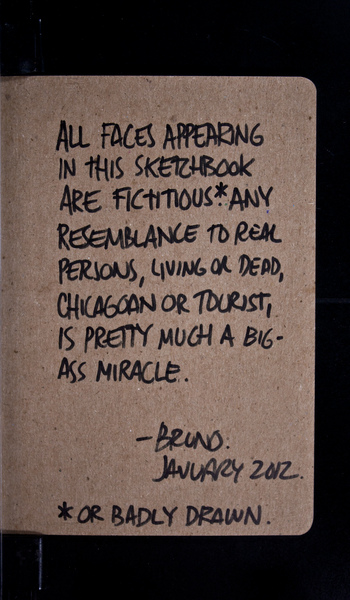 ALL FACES APPEARING
IN THIS SKETCHBOOK
ARE FICTITIOUS*. ANY
RESEMBLANCE TO REAL
PERSONS, LIVING OR DEAD,
CHICAGOAN OR TOURIST,
IS PRETTY MUCH A BIG-
ASS MIRACLE.
- BRUNO.
JANUARY 2012.
* OR BADLY DRAWN.